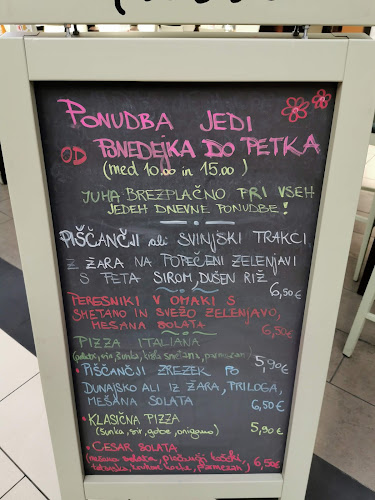 PONUDBA JEDI
OD PONEDEJKA DO PETKA
(med 10.00 in 15.00)
JUHA BREZPLAČNO PRI VSEH
JEDEH DNEVNE PONUDBE!
PIŠČANČJI ali SVINJSKI TRAKCI
Z ŽARA NA POPEČENI ZELENJAVI
S FETA SIROM, DUŠEN RIŽ
6,50€
PERESNIKI V OMAKI S
SMETANO IN SVEŽO ZELENJAVO,
MEŠANA SOLATA 6,50€
PIZZA ITALIANA
(pelate, sir, šunka, kisla smetana, parmezan) 5,90€
• PIŠČANČJI ZREZEK PO
DUNAJSKO ALI IZ ŽARA, PRILOGA,
MEŠANA SOLATA 6,50€
• KLASIČNA PIZZA
(šunka, sir, gobe, origano) 5,90€
• CESAR SOLATA
(mešana solata, piščančji koščki,
kocke, parmezan) 6,50€